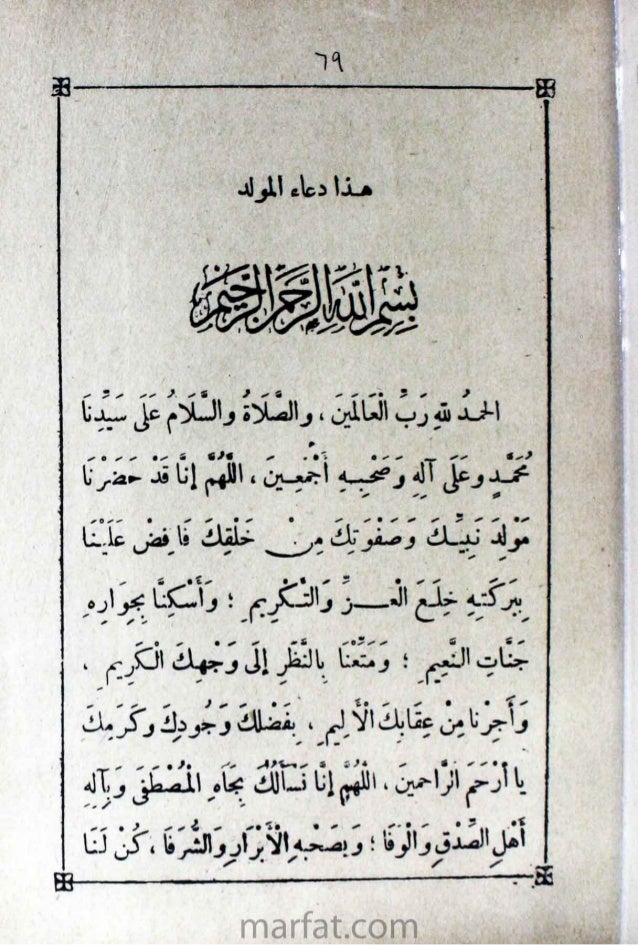 ٦٩
هذا دعاء المولد
بِسْمِ اللَّهِ الرَّحْمَنِ الرَّحِيمِ
الحمدُ للهِ رَبِّ الْعَالَمِينَ ، والصَّلَاةُ والسَّلَامُ عَلَى سَيِّدِنَا
مُحَمَّدٍ وعَلَى آلِهِ وَصَحْبِهِ أَجْمَعِينَ ، اللَّهُمَّ إنَّا قَدْ حَضَرْنَا
مَوْلِدَ نَبِيِّكَ وَصَفْوَتِكَ مِنْ خَلْقِكَ فَافِضْ عَلَيْنَا
بِبَرَكَتِهِ خِلَعَ الْعِزِّ وَالتَّكْرِيمِ ؛ وَأَسْكِنَّا بِجِوَارِهِ
جَنَّاتِ النَّعِيمِ ؛ وَمَتِّعْنَا بِالنَّظَرِ إلَى وَجْهِكَ الْكَرِيمِ ،
وَأَجِرْنا مِنْ عِقَابِكَ الْأَلِيمِ ، بِفَضْلِكَ وَجُودِكَ وكَرَمِكَ
يا أرْحَمَ الرَّاحِمينَ ، اللَّهُمَّ إنَّا نَسْأَلُكَ بِجَاهِ الْمُصْطَفَى وَبِآلِهِ
أَهْلِ الصِّدْقِ وَالْوَفَا ؛ وَبِصَحْبِهِ الْأَبْرَارِ وَالشُّرَفَا ، كُنْ لَنَا
marfat.com